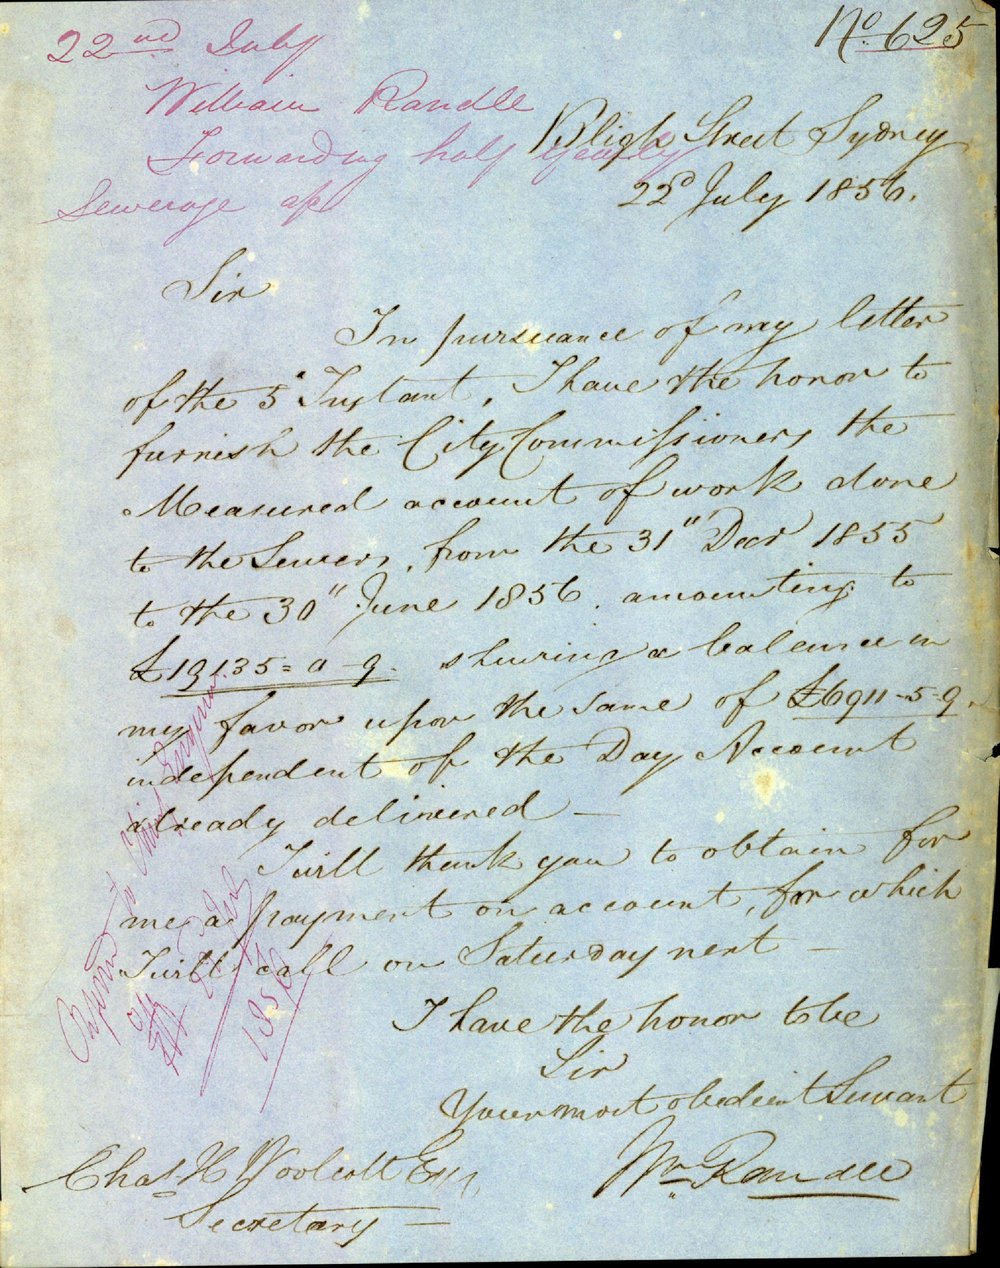 No. 625
22nd July
William Randle
Forwarding half Yearly
Sewerage a/c
Bligh Street Sydney
22d July 1856.
Sir
In pursuance of my letter
of the 5" Instant, I have the honor to
furnish the City Commissioners the
Measured account of work done
to the Sewers, from the 31" Decr 1855
to the 30" June 1856. amounting to
£19135=0-9. shewing a balance in
my favor upon the same of £6911-5=9
independent of the Day Account
already delivered –
I will thank you to obtain for
me a payment on account, for which
I will call on Saturday next –
I have the honor to be
Sir
Your most obedient Servant
Wm Randle
Chas H Woolcott Esq,
Secretary
1856